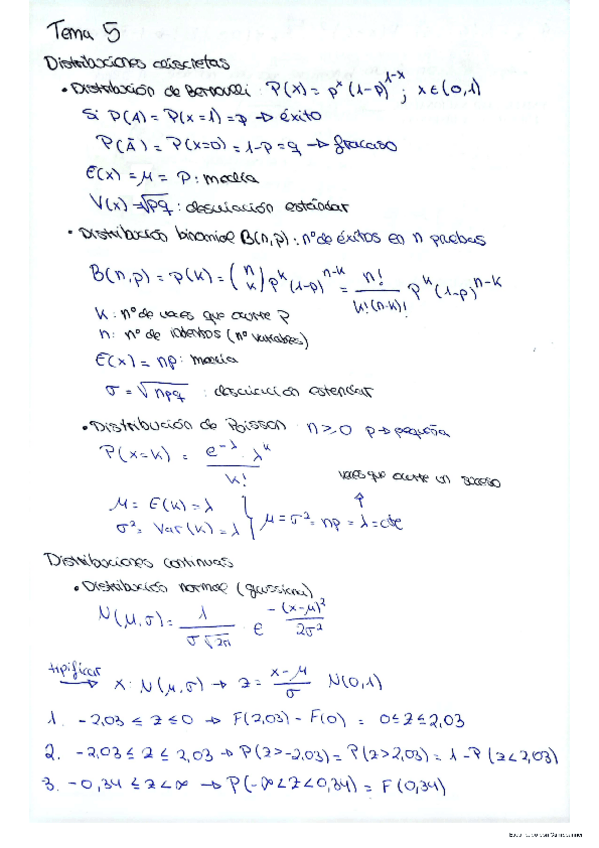 Tema 5
Distribuciones discretas
• Distribución de Bernoulli : P(x) = p^x (1-p)^1-x ; x ∈ (0,1)
Si P(A) = P(x=1) = p → éxito
P(Ā) = P(x=0) = 1-p = q → fracaso
E(x) = μ = P : media
V(x) = √pq : desviación estándar
• Distribución binomial B(n,p) : nº de éxitos en n pruebas
B(n,p) = p(k) = (n k) p^k (1-p)^n-k = n! / k!(n-k)! p^k (1-p)^n-k
k : nº de veces que ocurre P
n : nº de intentos (nº variables)
E(x) = np : media
σ = √npq : desviación estándar
• Distribución de Poisson n ≥ 0 p → pequeña
P(x=k) = e^-λ · λ^k / k!
veces que ocurre un suceso
μ = E(k) = λ
σ² = Var(k) = λ } μ = σ² = np = λ = cte
Distribuciones continuas
• Distribución normal (gaussiana)
N(μ,σ) = 1 / σ√2π · e^-(x-μ)² / 2σ²
tipificar → x : N(μ,σ) → z = x-μ / σ N(0,1)
1. -2,03 ≤ z ≤ 0 → F(2,03) - F(0) = 0 ≤ z ≤ 2,03
2. -2,03 ≤ z ≤ 2,03 → P(z>-2,03) = P(z>2,03) = 1-P(z<2,03)
3. -0,34 ≤ z < ∞ → P(-∞<z<0,34) = F(0,34)